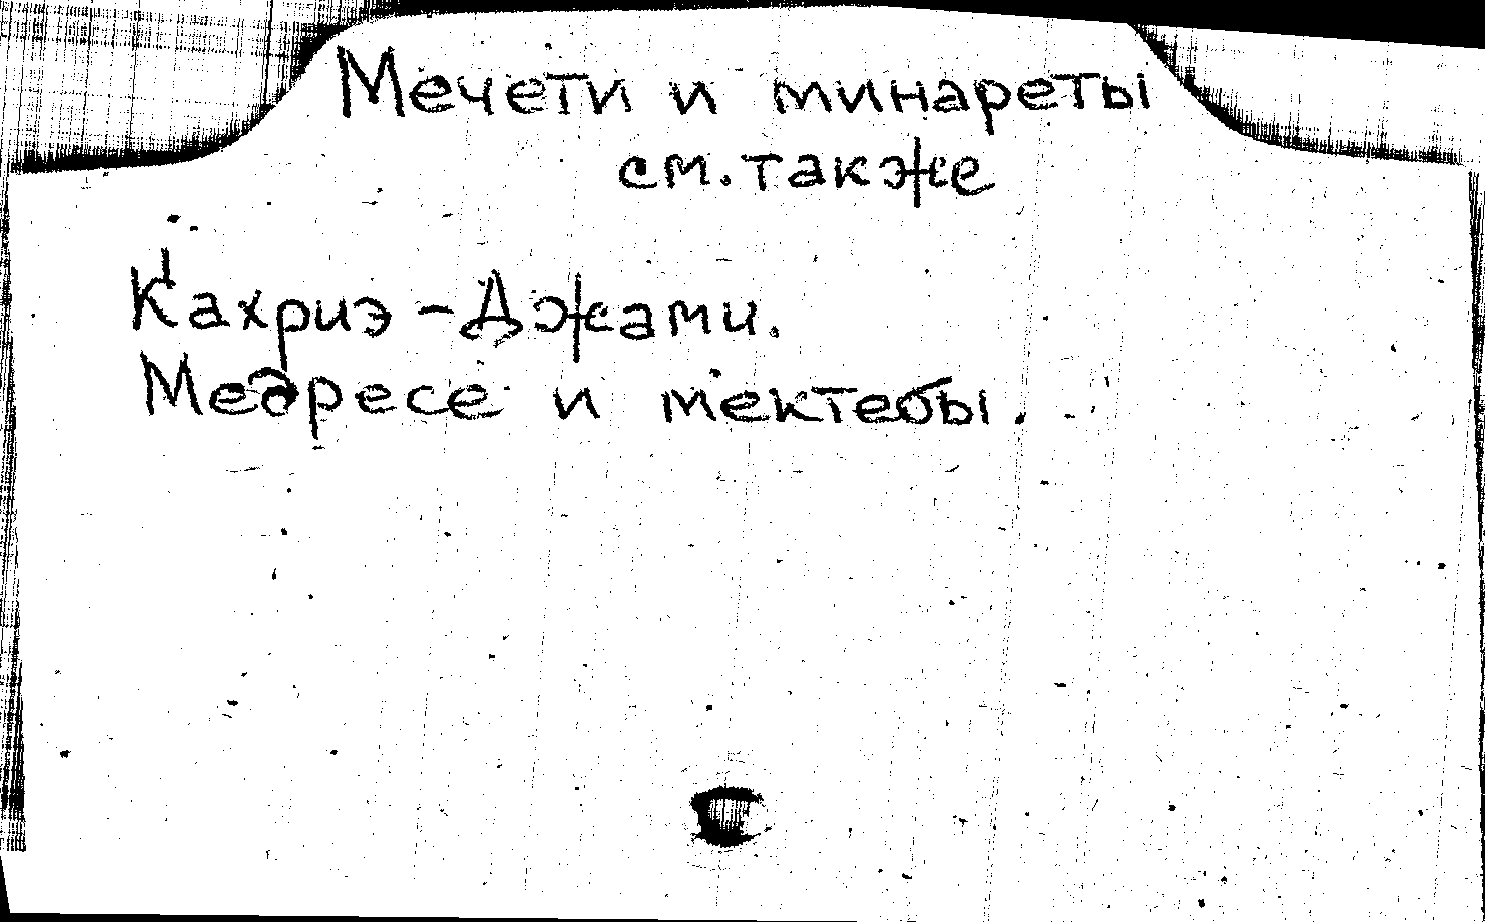 Мечети и минареты
см. также
Кахриэ-Джами.
Медресе и мектебы.